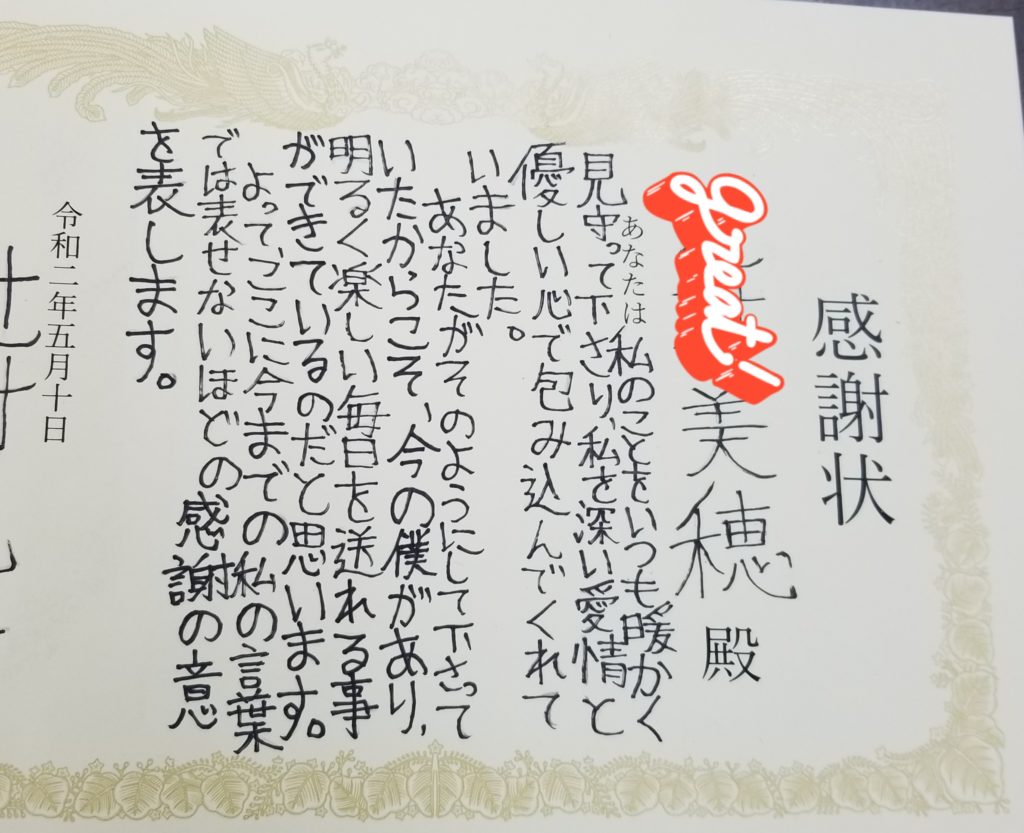 感謝状
great!
美穂 殿
あなたは私のことをいつも暖かく
見守って下さり、私を深い愛情と
優しい心で包み込んでくれて
いました。
あなたがそのようにして下さって
いたからこそ、今の僕があり、
明るく楽しい毎日を送れる事
ができているのだと思います。
よって、ここに今までの私の言葉
では表せないほどの感謝の意
を表します。
令和二年五月十日